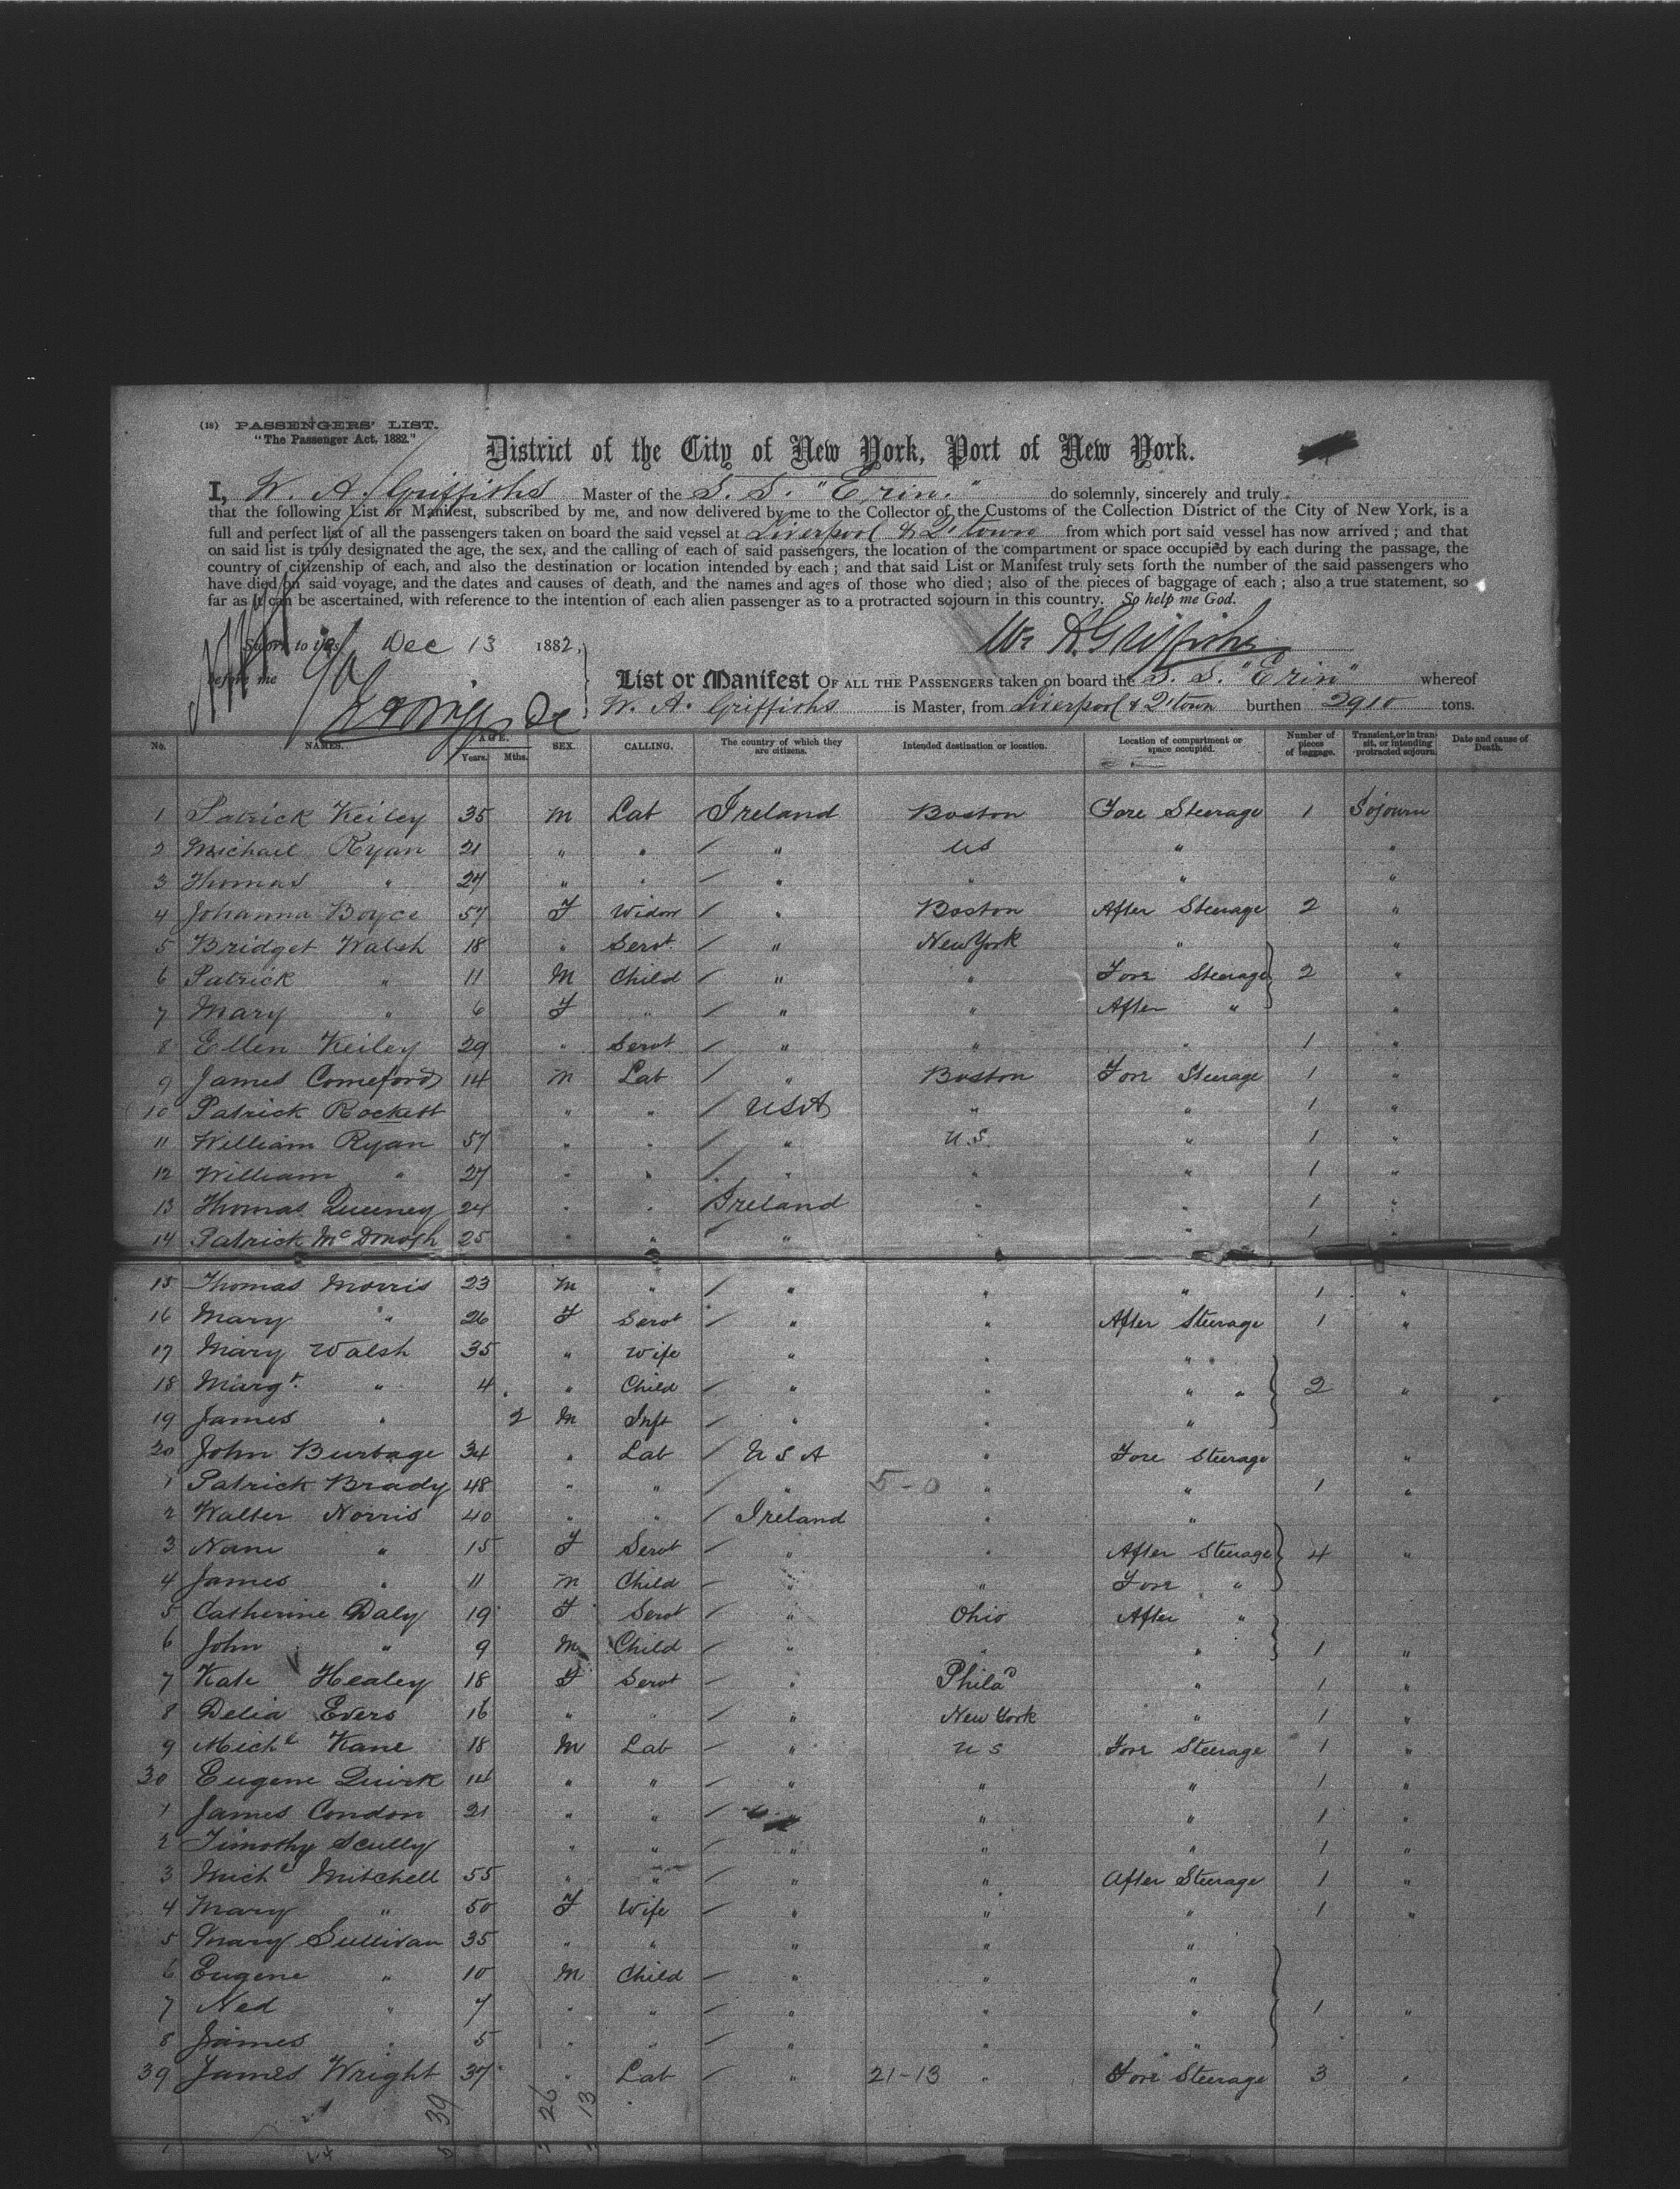 (18) PASSENGERS' LIST.
"The Passenger Act, 1882."
District of the City of New York, Port of New York.
I, W. A. Griffiths Master of the S. S. "Erin." do solemnly, sincerely and truly
that the following List or Manifest, subscribed by me, and now delivered by me to the Collector of the Customs of the Collection District of the City of New York, is a
full and perfect list of all the passengers taken on board the said vessel at Liverpool & Q'town from which port said vessel has now arrived; and that
on said list is truly designated the age, the sex, and the calling of each of said passengers, the location of the compartment or space occupied by each during the passage, the
country of citizenship of each, and also the destination or location intended by each; and that said List or Manifest truly sets forth the number of the said passengers who
have died on said voyage, and the dates and causes of death, and the names and ages of those who died; also of the pieces of baggage of each; also a true statement, so
far as it can be ascertained, with reference to the intention of each alien passenger as to a protracted sojourn in this country. So help me God.
Sworn to this Dec 13 1882, Wm A Griffiths
before me
List or Manifest OF ALL THE PASSENGERS taken on board the S. S. "Erin" whereof
W. A. Griffiths is Master, from Liverpool & Q'town burthen 2910 tons.
No. NAMES. AGE. Years. Mths. SEX. CALLING. The country of which they are citizens. Intended destination or location. Location of compartment or space occupied. Number of pieces of baggage. Transient, or in transit, or intending protracted sojourn. Date and cause of Death.
1 Patrick Keiley 35 M Lab Ireland Boston Fore Steerage 1 Sojourn
2 Michael Ryan 21 " " " US " "
3 Thomas " 24 " " " " " "
4 Johanna Boyce 57 F Widow " Boston After Steerage 2 "
5 Bridget Walsh 18 " Servt " New York " "
6 Patrick " 11 M Child " " Fore Steerage 2 "
7 Mary " 6 F " " " After " "
8 Ellen Keiley 29 " Servt " " " 1 "
9 James Comeford 14 M Lab " Boston Fore Steerage 1 "
10 Patrick Rockett " " USA " " 1 "
11 William Ryan 57 " " " U.S. " 1 "
12 William " 27 " " " " " 1 "
13 Thomas Queeney 24 " " Ireland " " 1 "
14 Patrick McDonogh 25 " " " " " 1 "
15 Thomas Morris 23 M " " " " 1 "
16 Mary " 26 F Servt " " After Steerage 1 "
17 Mary Walsh 35 " Wife " " "
18 Margt. " 4 " Child " " " " 2 "
19 James " 2 M Inft " " "
20 John Burbage 34 " Lab U S A " Fore Steerage "
1 Patrick Brady 48 " " " 5-0 " " 1 "
2 Walter Norris 40 " " Ireland " "
3 Nam " 15 F Servt " " After Steerage 4 "
4 James " 11 M Child " " Fore "
5 Catherine Daly 19 F Servt " Ohio After "
6 John " 9 M Child " " " 1 "
7 Kate Healey 18 F Servt " Phila " 1 "
8 Delia Evers 16 " " " New York " 1 "
9 Michl Kane 18 M Lab " U S Fore Steerage 1 "
30 Eugene Quirk 14 " " " " " 1 "
1 James Condon 21 " " " " " 1 "
2 Timothy Scully " " " " " 1 "
3 Michl Mitchell 55 " " " " After Steerage 1 "
4 Mary " 50 F Wife " " " 1 "
5 Mary Sullivan 35 " " " " "
6 Eugene " 10 M Child " " "
7 Ned " 7 " " " " " 1 "
8 James " 5 " " " " "
39 James Wright 37 " Lab " 21-13 " Fore Steerage 3 "
39 26 13